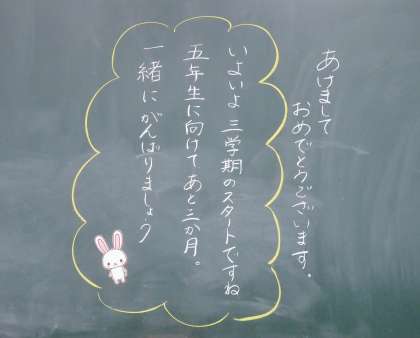 あけまして
おめでとうございます。
いよいよ三学期のスタートですね
五年生に向けてあと三か月。
一緒にがんばりましょう